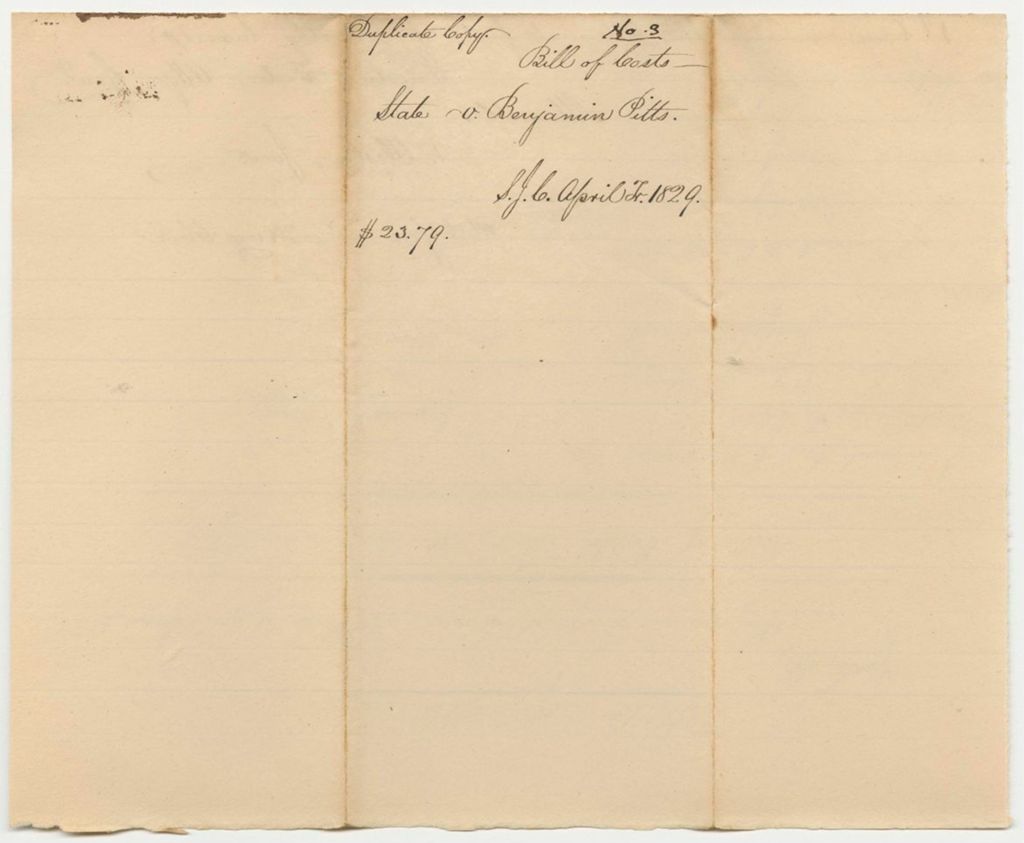 Duplicate Copy. No. 3
Bill of Costs —
State v. Benjamin Pitts.
S.J.C. April Tr. 1829.
$23.79.